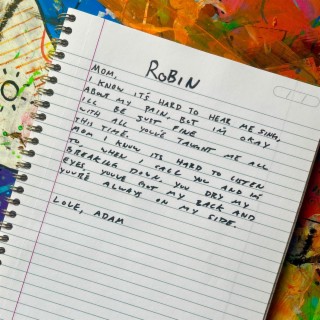 ROBIN
MOM,
I KNOW IT'S HARD TO HEAR ME SING
ABOUT MY PAIN, BUT I'M OKAY
I'LL BE JUST FINE
WITH ALL YOU'VE TAUGHT ME ALL
THIS TIME.
MOM I KNOW ITS HARD TO LISTEN
TO, WHEN I CALL YOU AND I'M
BREAKING DOWN, YOU DRY MY
EYES YOU'VE GOT MY BACK AND
YOU'RE ALWAYS ON MY SIDE.
LOVE, ADAM